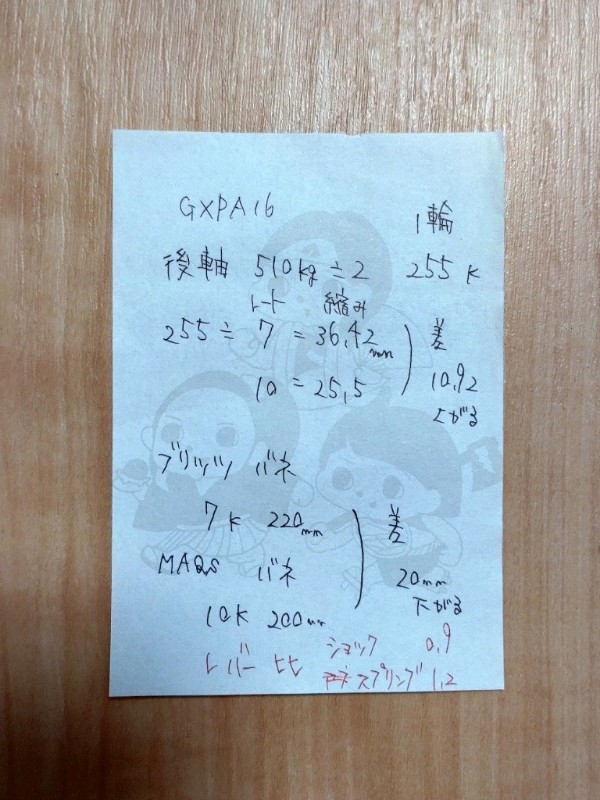 GXPA16
1輪
後軸 510kg ÷ 2 255 K
レート 縮み
255 ÷ 7 = 36,42mm
10 = 25,5
差
10,92
上がる
ブリッツ バネ
7K 220mm
MAQs バネ
10K 200mm
差
20mm
下がる
レバー比 ショック 0,9
スプリング 1,2